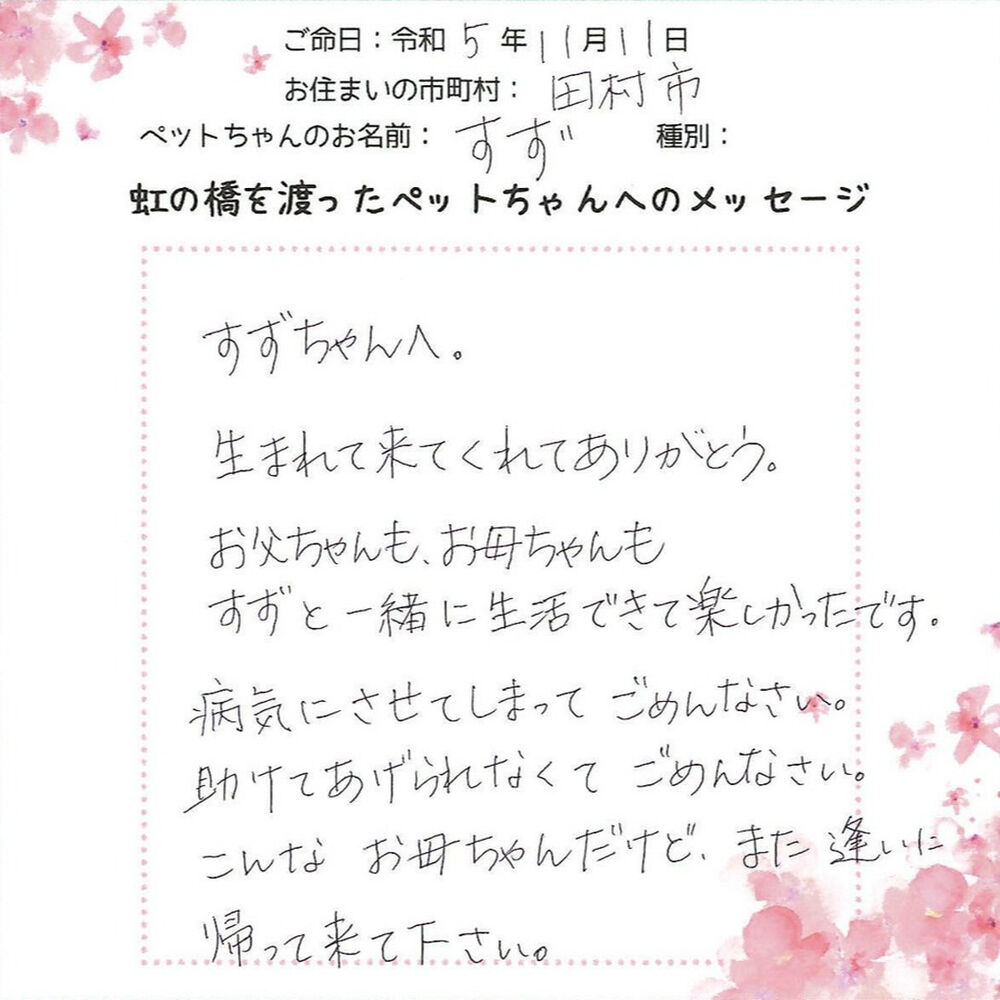 ご命日：令和 5 年 11月 11日
お住まいの市町村： 田村市
ペットちゃんのお名前： すず 種別：
虹の橋を渡ったペットちゃんへのメッセージ
すずちゃんへ。
生まれて来てくれてありがとう。
お父ちゃんも、お母ちゃんも
すずと一緒に生活できて楽しかったです。
病気にさせてしまって ごめんなさい。
助けてあげられなくて ごめんなさい。
こんな お母ちゃんだけど、また逢いに
帰って来て下さい。